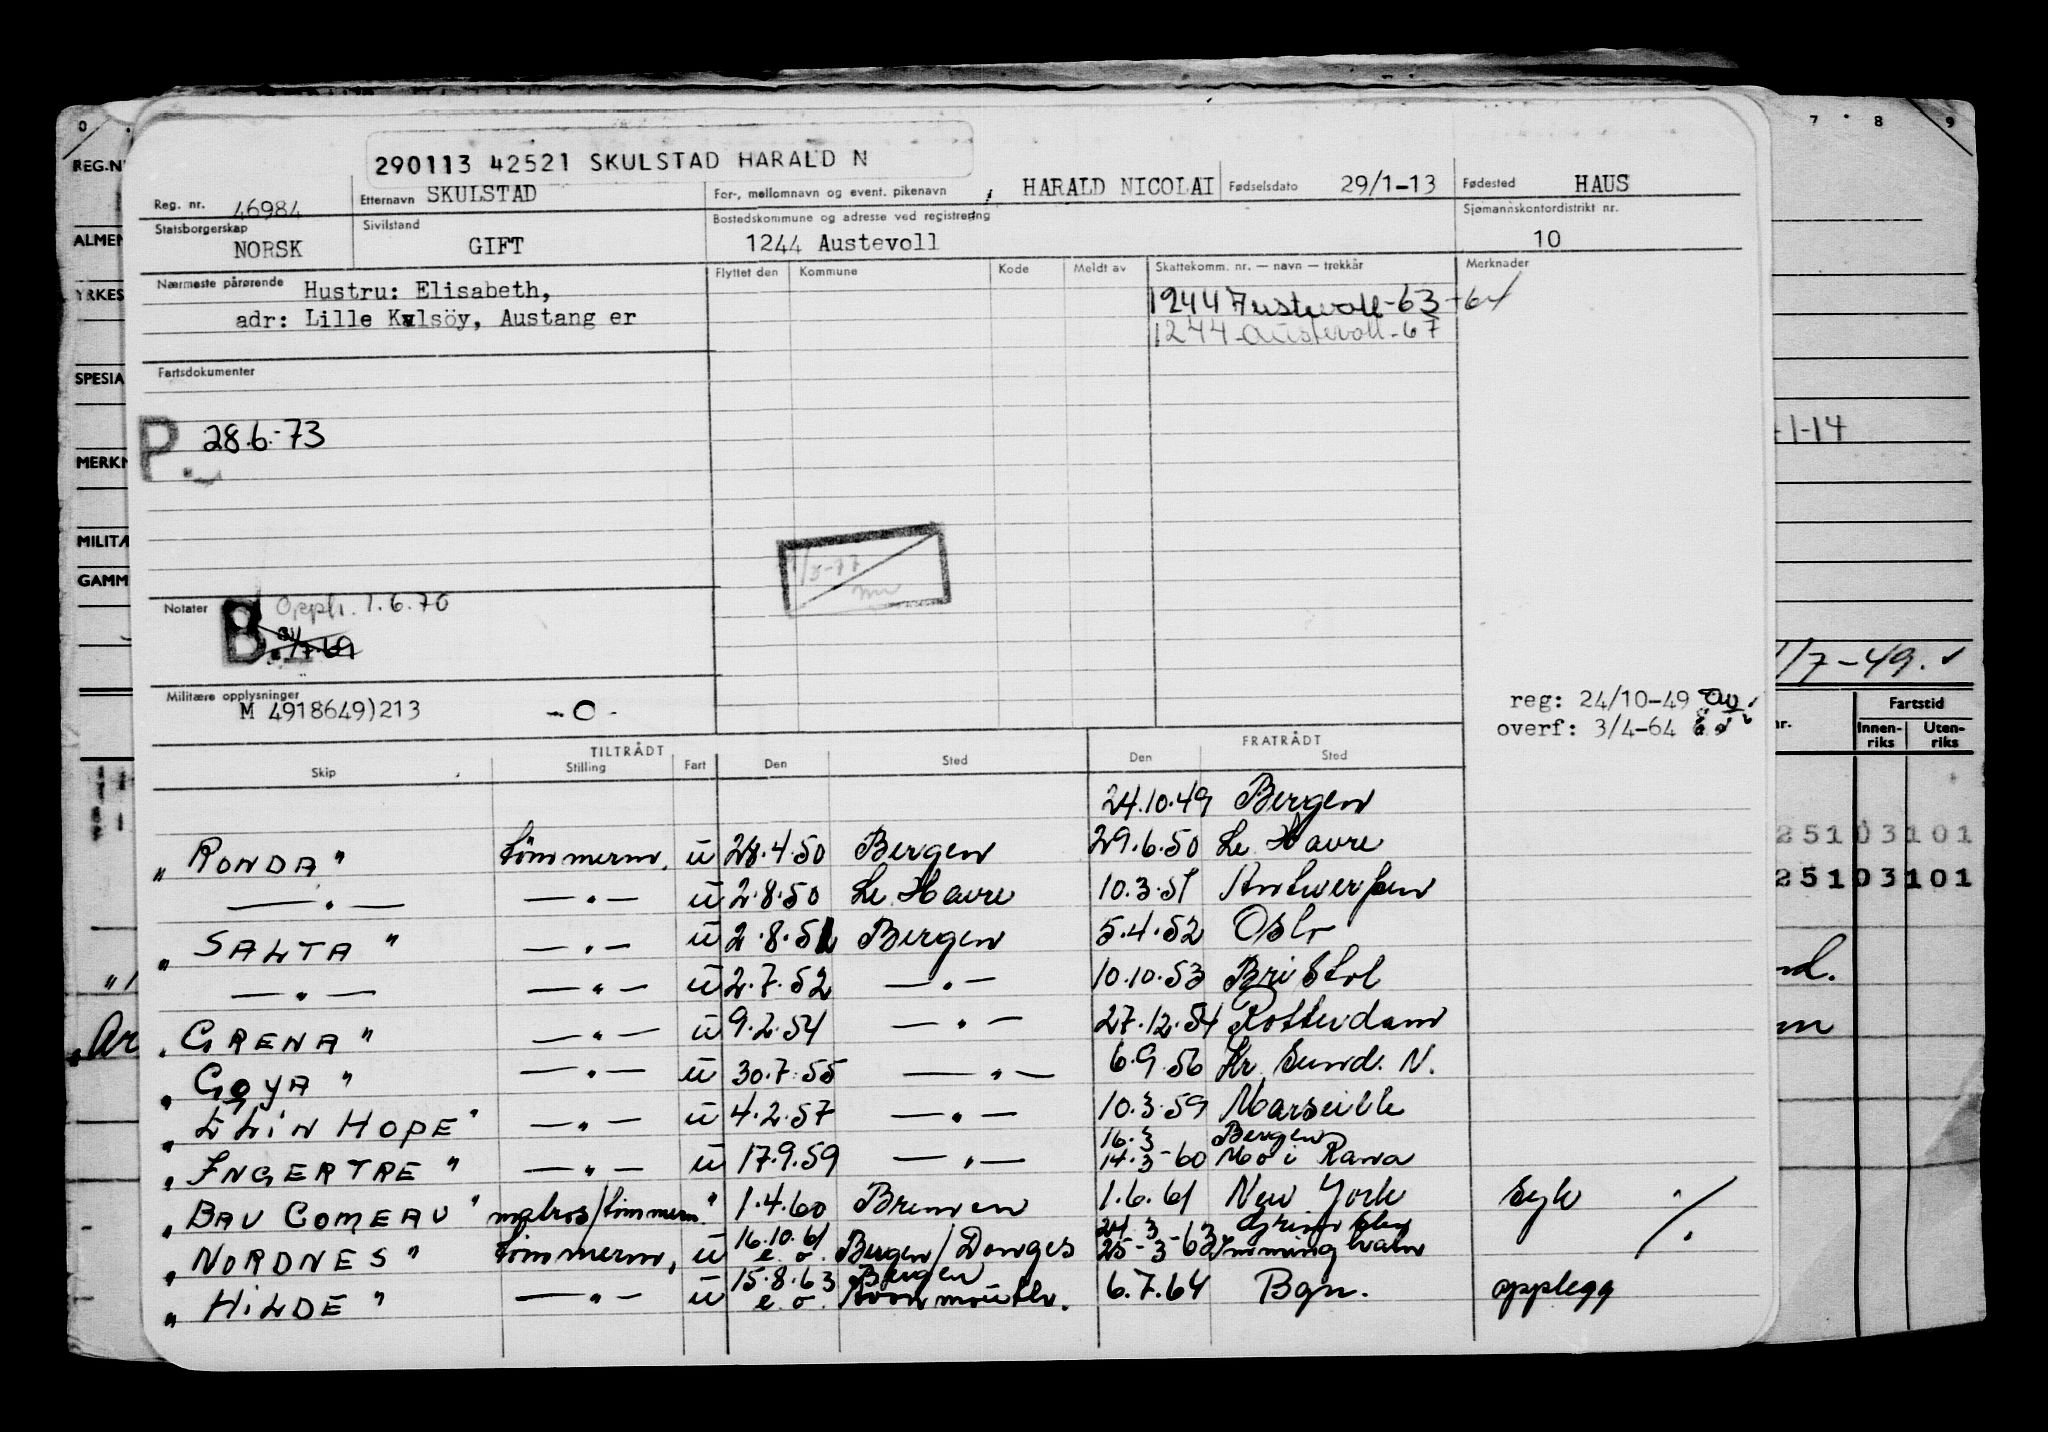 290113 42521 SKULSTAD HARALD N
Reg. nr. 46984 Etternavn SKULSTAD For-, mellomnavn og event. pikenavn HARALD NICOLAI Fødselsdato 29/1-13 Fødested HAUS
Statsborgerskap NORSK Sivilstand GIFT Bostedskommune og adresse ved registrering 1244 Austevoll Sjømannskontordistrikt nr. 10
Nærmeste pårørende Hustru: Elisabeth,
adr: Lille Kalsöy, Austang er
Flyttet den Kommune Kode Meldt av Skattekomm. nr. — navn — trekkår Merknader
1244 Austevoll-63-64
1244-Austevoll-67
Fartsdokumenter
P. 28.6.-73
1/3-77
Notater B Opph. 1.6.70
Militære opplysninger
M 4918649)213 -0-
reg: 24/10-49
overf: 3/4-64
TILTRÅDT FRATRÅDT
Skip Stilling Fart Den Sted Den Sted
24.10.49 Bergen
"RONDA" tömmerm. ü 28.4.50 Bergen 29.6.50 Le Havre
—"— —"— ü 2.8.50 Le Havre 10.3.51 Antwerpen
"SALTA" —"— ü 2.8.51 Bergen 5.4.52 Oslo
—"— —"— ü 2.7.52 —"— 10.10.53 Bristol
"GRENA" —"— ü 9.2.54 —"— 27.12.54 Rotterdam
"GOYA" —"— ü 30.7.55 —"— 6.9.56 Kr. Sund. N.
"ELIN HOPE" —"— ü 4.2.57 —"— 10.3.59 Marseille
"INGERTRE" —"— ü 17.9.59 —"— 16.3 14.3-60 Bergen Mo i Rana
"BAU COMEAU" matros/tömmerm. " 1.4.60 Bremen 1.6.61 New York Syk ./.
"NORDNES" tömmerm. ü 16.10.61 e. o. Bergen/Donges 24.3-63 25-3-63 Grimsby Immingham
"HILDE" —"— ü 15.8.63 e. o. Bergen Avonmouth. 6.7.64 Bgn. opplegg
0 7 8 9
REG.N
ALMEN
YRKES
SPESIA
MERKN
MILITÆ
GAMM
1-14
1/7-49.
nr. Fartstid
Innen-riks Uten-riks
25103101
25103101
nd.
Ar
m